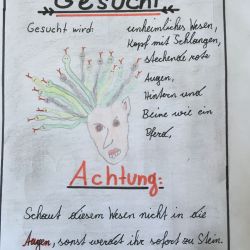 Gesucht
Gesucht wird: unheimliches Wesen,
Kopf mit Schlangen,
stechende rote
Augen,
Hintern und
Beine wie ein
Pferd,
Achtung:
Schaut diesen Wesen nicht in die
Augen, sonst werdet ihr sofort zu Stein.